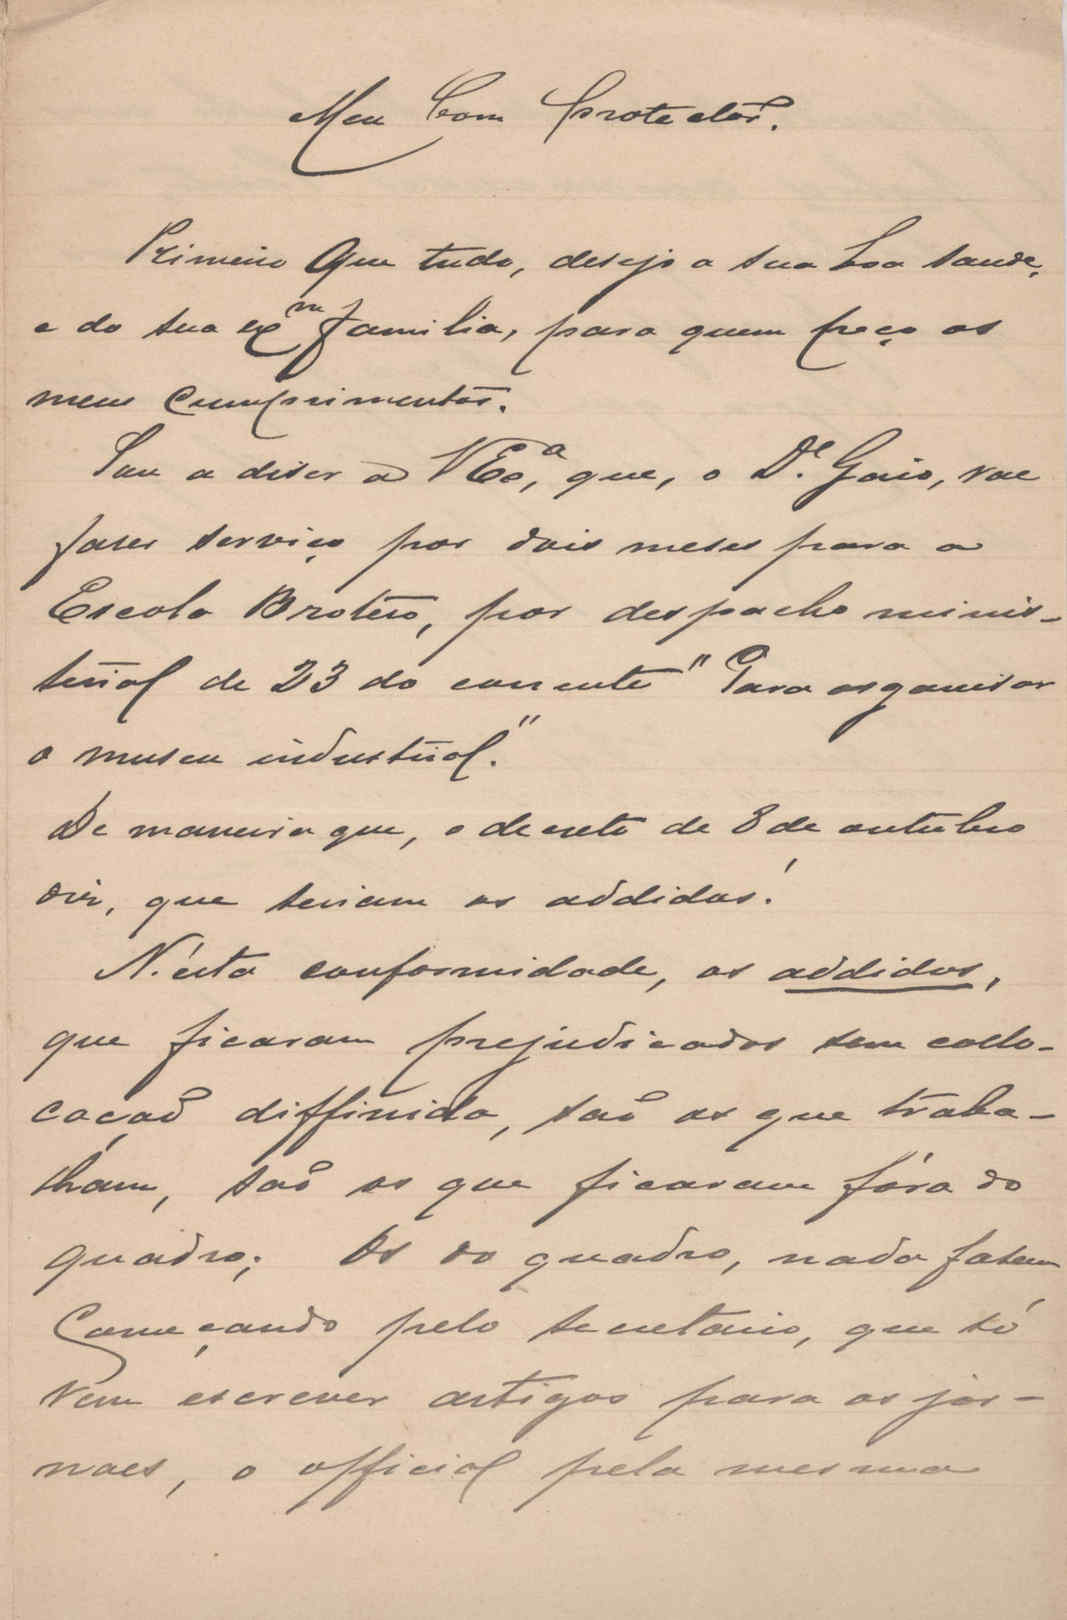 Meu bom protector.
Primeiro que tudo, desejo a sua boa saude,
e da sua exma familia, para quem peço os
meus cumprimentos.
Sou a diser a VExa, que, o Dr. Gaio, vae
faser serviço por dois meses para a
Escola Brotero, por despacho minis-
terial de 23 do corrente "Para organisar
o museu industrial."
De maneira que, o decreto de 8 de outubro
diz, que seriam os addidos!
N'ésta conformidade, os addidos,
que ficaram prejudicados sem collo-
cação diffinida, são os que traba-
lham, são os que ficaram fóra do
quadro; Os do quadro, nada fasem
Começando pelo secretario, que só
vem escrever artigos para os jor-
naes, o official pela mesma